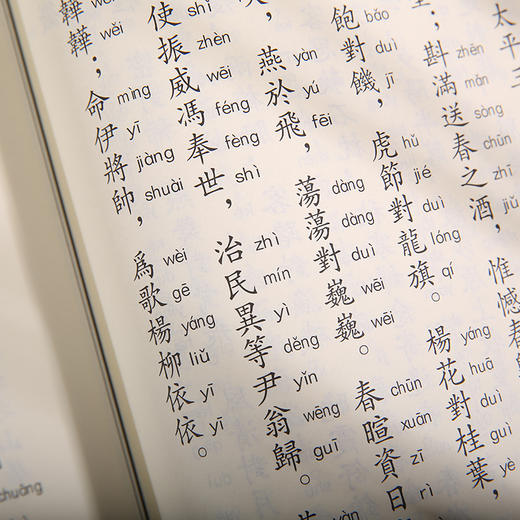 太平三
；斟 zhēn 滿 mǎn 送 sòng 春 chūn 之 zhī 酒 jiǔ ，惟憾春
飽 bǎo 對 duì 饑 jī ，虎 hǔ 節 jié 對 duì 龍 lóng 旗 qí 。楊 yáng 花 huā 對 duì 桂 guì 葉 yè ，
燕 yàn 於 yú 飛 fēi ，蕩 dàng 蕩 dàng 對 duì 巍 wēi 巍 wēi 。春 chūn 暄 xuān 資 zī 日 rì
使 shǐ 振 zhèn 威 wēi 馮 féng 奉 fèng 世 shì ，治 zhì 民 mín 異 yì 等 děng 尹 yǐn 翁 wēng 歸 guī 。
韡 韡 wěi ；命 mìng 伊 yī 將 jiàng 帥 shuài ，爲 wèi 歌 gē 楊 yáng 柳 liǔ 依 yī 依 yī 。
chuāng